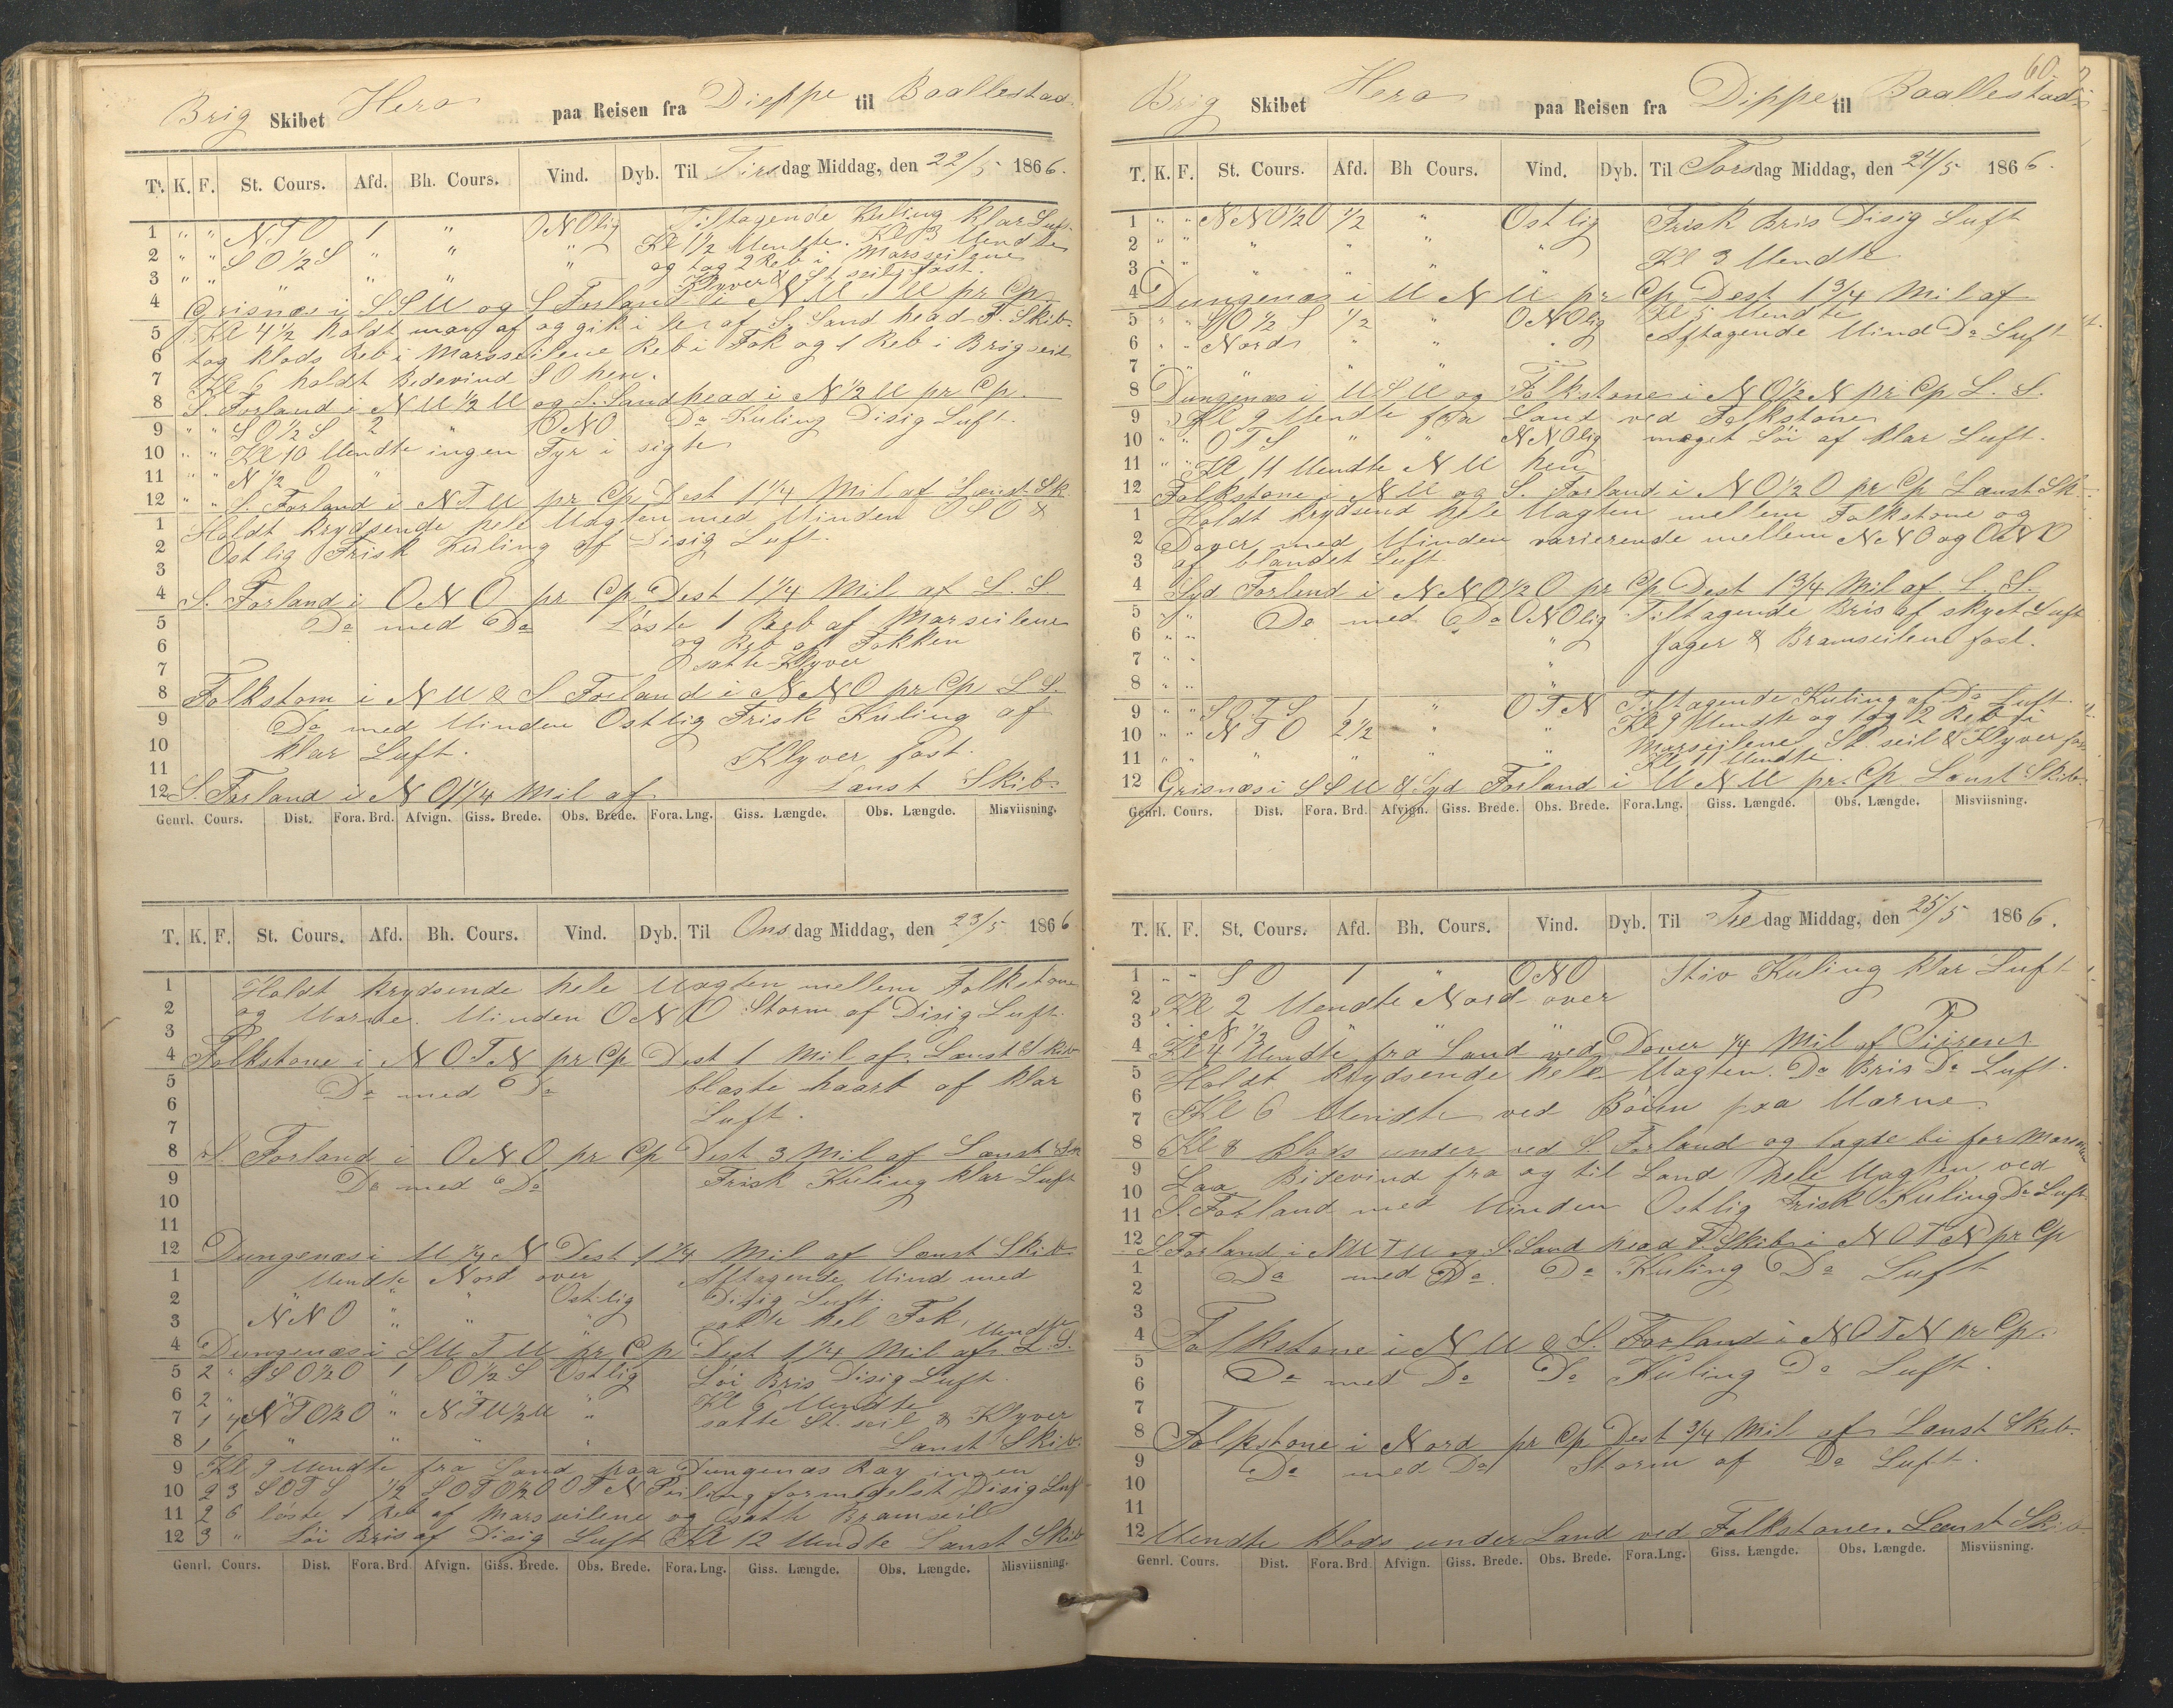 Brig Skibet Hera paa Reisen fra Dieppe til Baallestad
T. K. F. St. Cours. Afd. Bh. Cours. Vind. Dyb. Til Tirsdag Middag, den 22/5 1866.
1 " " NTO 1 " ONOlig Tiltagende Kuling klar Luft
2 " " SO1/2S " " " Kl 1 1/2 Vendte. Kl 3 Vendte
3 " " " " " " og tog 2 Reb i Marsseilene
Klyver & St. seil fast.
4 Grisnæs i SSV og S Forland i NVTV pr Cp
5 Kl 4 1/2 holdt af og gik i ler af S. Sand head F. Skib
6 tog klods Reb i Marsseilene Reb i Fok og 1 Reb i Brigseil
7 Kl 6 holdt Bidevind SO hen.
8 S. Forland i NV1/2V og S. Sandhead i N1/2V pr Cp.
9 " " SO1/2S 2 " ONO Do Kuling Disig Luft.
10 " " Kl 10 Vendte ingen Fyr i sigte
11 " " N1/2O "
12 " " S. Forland i NTV pr Cp Dest 1 1/4 Mil af Lænst Sk.
1 Holdt krydsende hele Vagten med Vinden OSO &
2 Ostlig Frisk Kuling af Disig Luft.
3
4 S. Forland i ONO pr Cp Dest 1 1/4 Mil af L. S
5 Do med Do Løste 1 Reb af Marseilene
6 og Reb af Fokken
7 satte Klyver
8 Folkstom i NV & S Forland i NNO pr Cp L S.
9 Do med Vinden Ostlig Frisk Kuling af
10 klar Luft. Klyver fast.
11
12 S. Forland i NO 1 1/4 Mil af Lænst Skib
Genrl. Cours. Dist. Fora. Brd. Afvign. Giss. Brede. Obs. Brede. Fora. Lng. Giss. Længde. Obs. Længde. Misviisning.
T. K. F. St. Cours. Afd. Bh. Cours. Vind. Dyb. Til Onsdag Middag, den 23/5 1866
1 Holdt krydsende hele Vagten mellem Folkstone
2 og Varne. Vinden ONO Storm af Disig Luft.
3
4 Folkstone i NOTN pr Cp Dest 1 Mil af. Lænst Skib
5 Do med Do blæste haart af klar
6 Luft.
7
8 S. Forland i ONO pr Cp Dest 3 Mil af Lænst Sk
9 Do med Do Frisk Kuling klar Luft
10
11
12 Dungenæs i V1/4N Dest 1 3/4 Mil af Lænst Skib
1 Vendte Nord over Aftagende Vind med
2 " " " Ostlig Disig Luft.
3 NNO " " " satte hel Fok, Vendte
4 Dungenæs i SVTV pr Cp Dest 1 1/4 Mil af. L. S.
5 2 " SSO1/2O 1 SO1/2S Ostlig Løi Bris Disig Luft.
6 2 " " " " " Kl 6 Vendte
7 1 4 NTO1/2O " NTV1/2V " satte St. seil & Klyver
8 1 6 " " " " Lænst Skib.
9 Kl 9 Vendte fra Land paa Dungenæs Ray ingen
10 2 3 SOTS 1/2 SOTO1/2O OTN Peiling formedelst Disig Luft
11 2 6 løste 1 Reb af Marsseilene og satte Bramseil
12 3 " Løi Bris af Disig Luft Kl 12 Vendte Lænst Skib
Genrl. Cours. Dist. Fora. Brd Afvign. Giss. Brede. Obs. Brede. Fora. Lng. Giss. Længde. Obs. Længde. Misviisning.
60.
Brig Skibet Hera paa Reisen fra Dippe til Baallestad
T. K. F. St. Cours. Afd. Bh Cours. Vind. Dyb. Til Torsdag Middag, den 24/5 1866.
1 " " NNO1/2O 1/2 " Ostlig Frisk Bris Disig Luft
2 " " " " " "
3 " " " " " " Kl 3 Vendte
4 Dungenæs i VNV pr Cp Dest 1 3/4 Mil af
5 " " SO1/2S 1/2 " ONOlig Kl 5 Vendte
6 " " Nord " " " Aftagende Vind Do Luft
7 " " "
8 Dungenæs i VSV og Folkstone i NO1/2N pr Cp L. S.
9 Kl 9 Vendte fra Land ved Folkstone
10 " " OTS " " NNOlig meget Løi af klar Luft.
11 " " Kl 11 Vendte NV hen
12 Folkstone i NV og S. Forland i NO1/2O pr Cp Lænst Sk.
1 Holdt krydsend hele Vagten mellem Folkstone og
2 Dover med Vinden varierende mellem NNO og ONO
3 af blandet Luft.
4 Syd Forland i NNO1/2O pr Cp Dest 1 3/4 Mil af L. S.
5 " " Do med Do ONOlig Tiltagende Bris af skyet Luft
6 " " " Jager & Bramseilene fast.
7 " " "
8 " " "
9 " " SOTS 1 " OTN Tiltagende Kuling af Do Luft.
10 " " NTO 2 1/2 " " Kl 9 Vendte og tog 2 Reb i
11 " " " " " " Marseilene St. seil & Klyver fast
Kl 11 Vendte.
12 Grisnæs i SSV & Syd Forland i VNV pr. Cp Lænst Skib.
Genrl. Cours. Dist. Fora. Brd. Afvign. Giss. Brede. Obs. Brede. Fora. Lng. Giss. Længde. Obs. Længde. Misviisning.
T. K. F. St. Cours. Afd. Bh. Cours. Vind. Dyb. Til Fredag Middag, den 25/5 1866.
1 " " SO 1 " ONO Stiv Kuling klar Luft
2 Kl 2 Vendte Nord over
3 " " N1/2O " " "
4 Kl 4 Vendte fra Land ved Dover 1/4 Mil af Piirene
5 Holdt krydsende hele Vagten. Do Bris Do Luft.
6
7 Kl 6 Vendte ved Bøien paa Varne.
8 Kl 8 klods under ved S. Forland og lagde bi for Marsen
9 Laa Bidevind fra og til Land hele Vagten ved
10
11 S. Forland med Vinden Ostlig Frisk Kuling Do Luft.
12 S. Forland i NVTV og S. Sand head F. Skib i NOTN pr Cp
1 Do med Do. Do Kuling Do Luft
2
3
4 Folkstone i NV & S. Forland i NOTN pr Cp.
5 Do med Do Do Kuling Do Luft.
6
7
8 Folkstone i Nord pr Cp Dest 3/4 Mil af Lænst Skib.
9 Do med Do Storm af Do Luft.
10
11
12 Vendte klods under Land ved Folkstone. Lænst Skib
Genrl. Cours. Dist. Fora. Brd Afvign. Giss. Brede. Obs. Brede. Fora. Lng. Giss. Længde. Obs. Længde. Misviisning.